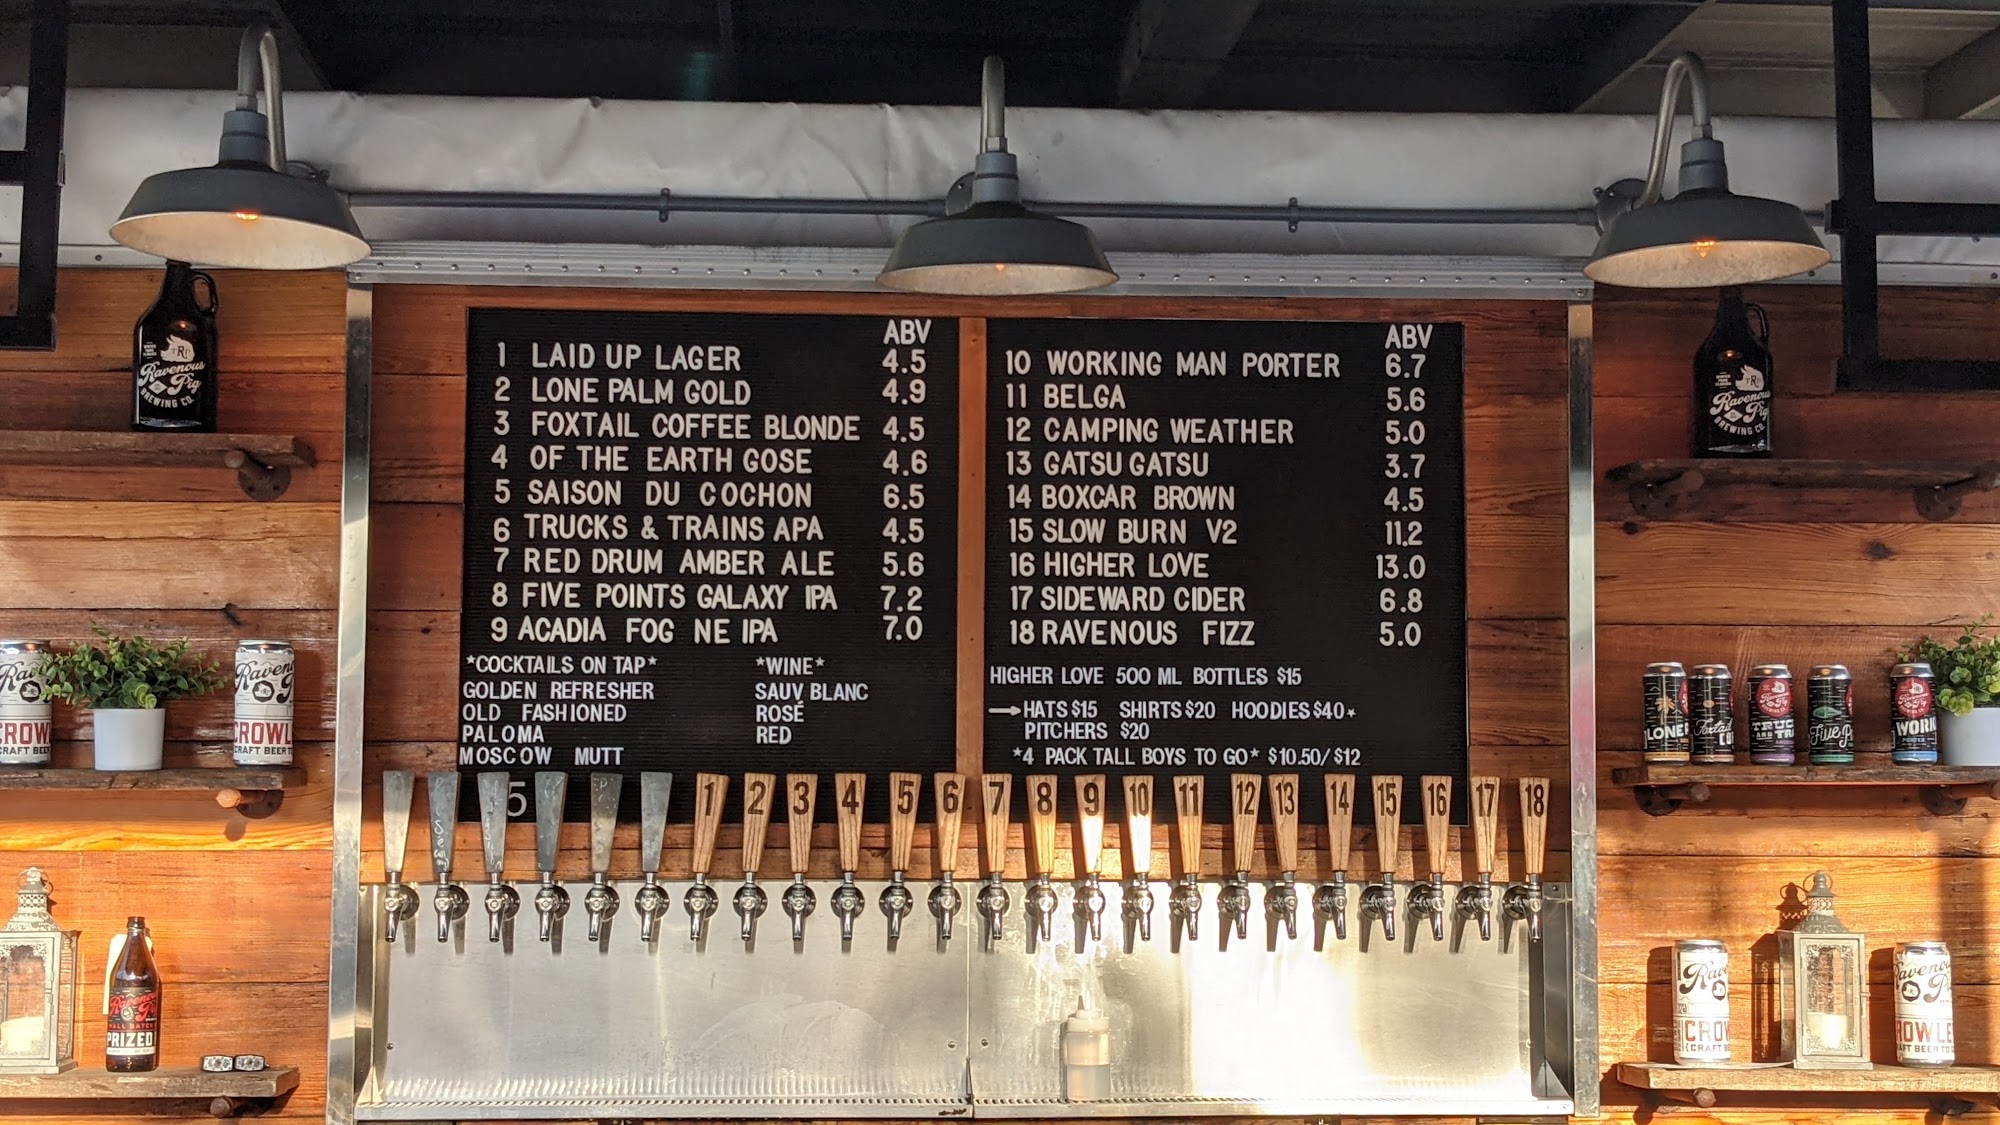 ABV
1 LAID UP LAGER 4.5
2 LONE PALM GOLD 4.9
3 FOXTAIL COFFEE BLONDE 4.5
4 OF THE EARTH GOSE 4.6
5 SAISON DU COCHON 6.5
6 TRUCKS & TRAINS APA 4.5
7 RED DRUM AMBER ALE 5.6
8 FIVE POINTS GALAXY IPA 7.2
9 ACADIA FOG NE IPA 7.0
*COCKTAILS ON TAP*
GOLDEN REFRESHER
OLD FASHIONED
PALOMA
MOSCOW MUTT
*WINE*
SAUV BLANC
ROSÉ
RED
ABV
10 WORKING MAN PORTER 6.7
11 BELGA 5.6
12 CAMPING WEATHER 5.0
13 GATSU GATSU 3.7
14 BOXCAR BROWN 4.5
15 SLOW BURN V2 11.2
16 HIGHER LOVE 13.0
17 SIDEWARD CIDER 6.8
18 RAVENOUS FIZZ 5.0
HIGHER LOVE 500 ML BOTTLES $15
→HATS $15 SHIRTS $20 HOODIES $40*
PITCHERS $20
*4 PACK TALL BOYS TO GO* $10.50/$12
5
1 2 3 4 5 6 7 8 9 10 11 12 13 14 15 16 17 18
TRP
Ravenous
Pig
BREWING CO.
TRP
Ravenous
Pig
BREWING CO.
CROWL
CRAFT BEER
CROWL
CRAFT BEER TO
PRIZED
LONE
TRUC
AND
TR
Five P
WORK
PORTER
CROW
CRAFT B
OWLE
CRAFT BEER TO